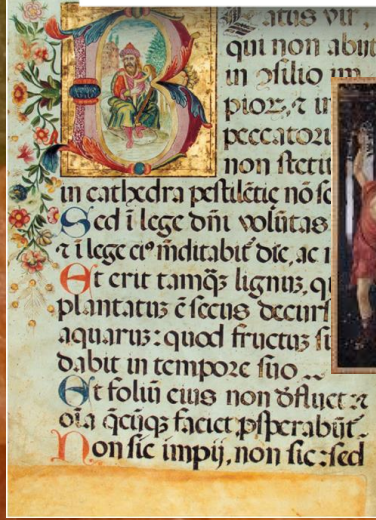 Beatus vir,
qui non abiit
in ɔsilio im
pioꝝ, ⁊ in
peccatoꝛi
non stetit
in cathedra pestilētie nō se
Sed ī lege dñi volūtas
⁊ ī lege eiꝰ meditabit̄ die, ac n
Et erit tamqꝫ lignuꝫ, q
plantatuꝫ ē secus decurs
aquaruꝫ: quod fructuꝫ su
dabit in tempore suo
Et foliū eius non defluet ⁊
oīa qcūqꝫ faciet ꝓsperabūt̄
Non sic impij, non sic: sed